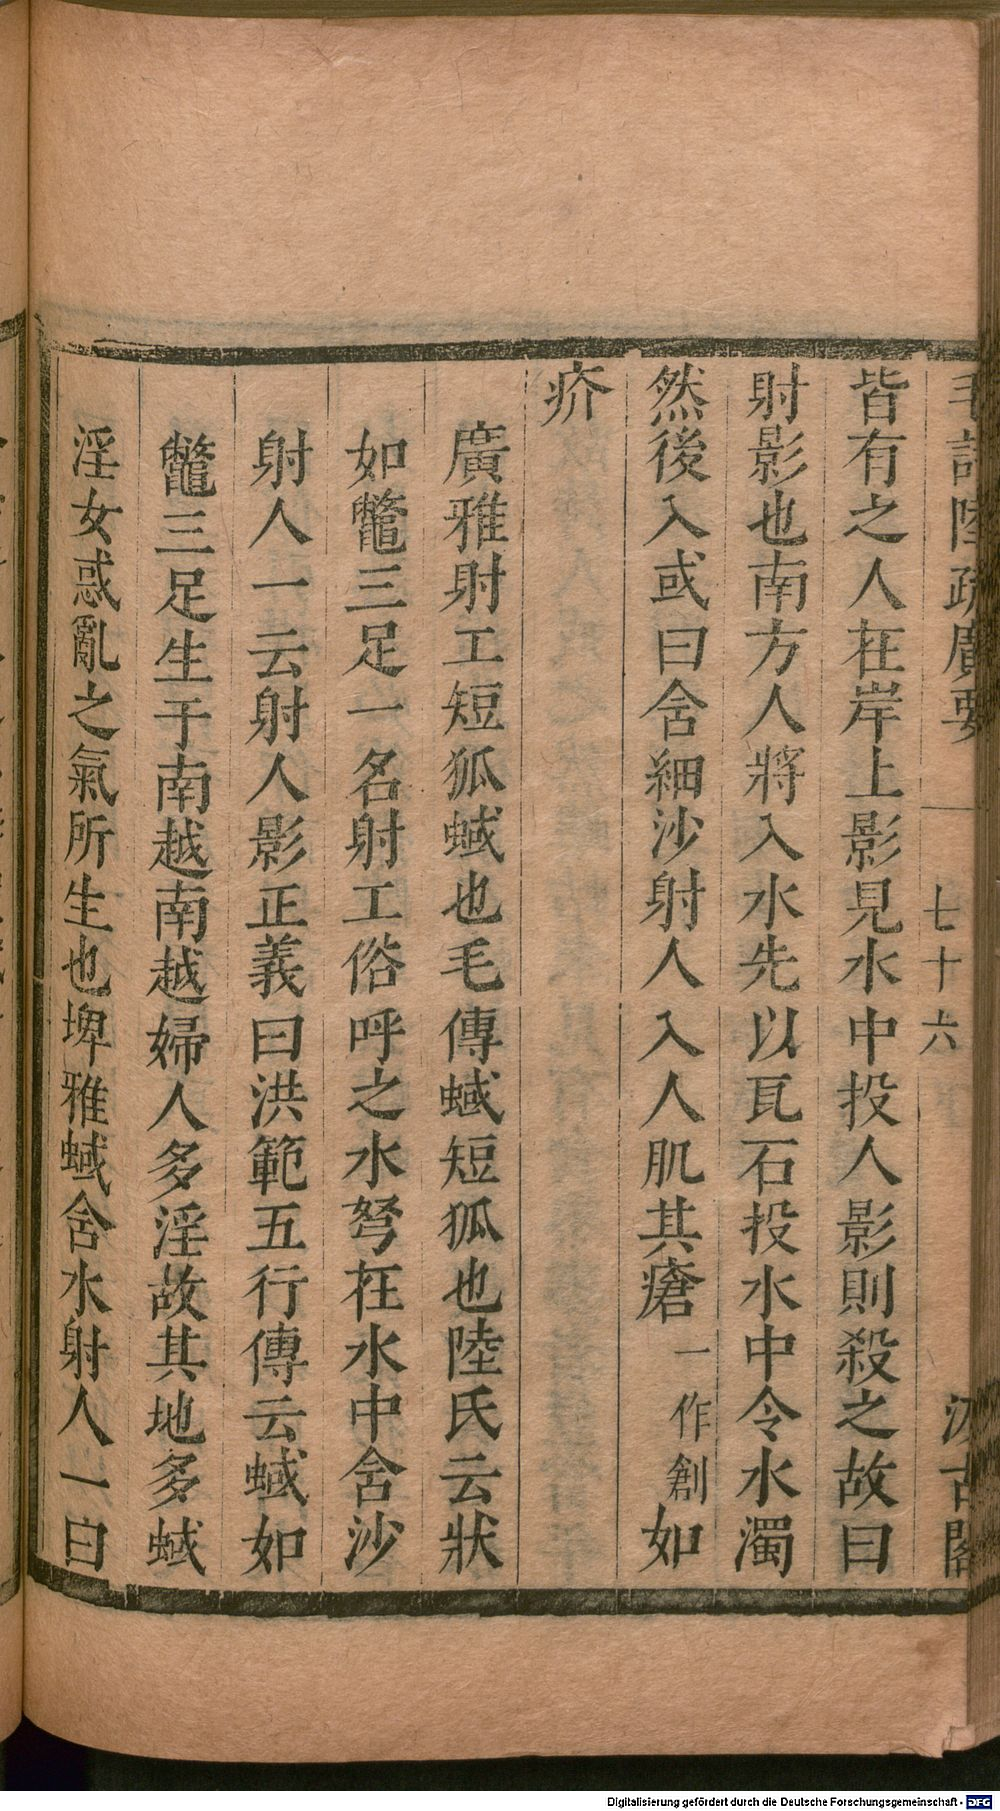 毛詩陸疏廣要
七十六
汲古閣
皆有之人在岸上影見水中投人影則殺之故曰
射影也南方人將入水先以瓦石投水中令水濁
然後入或曰含細沙射人入人肌其瘡一作創如
疥
廣雅射工短狐蜮也毛傳蜮短狐也陸氏云狀
如鼈三足一名射工俗呼之水弩在水中含沙
射人一云射人影正義曰洪範五行傳云蜮如
鼈三足生于南越南越婦人多淫故其地多蜮
淫女惑亂之氣所生也埤雅蜮含水射人一曰
Digitalisierung gefördert durch die Deutsche Forschungsgemeinschaft - DFG